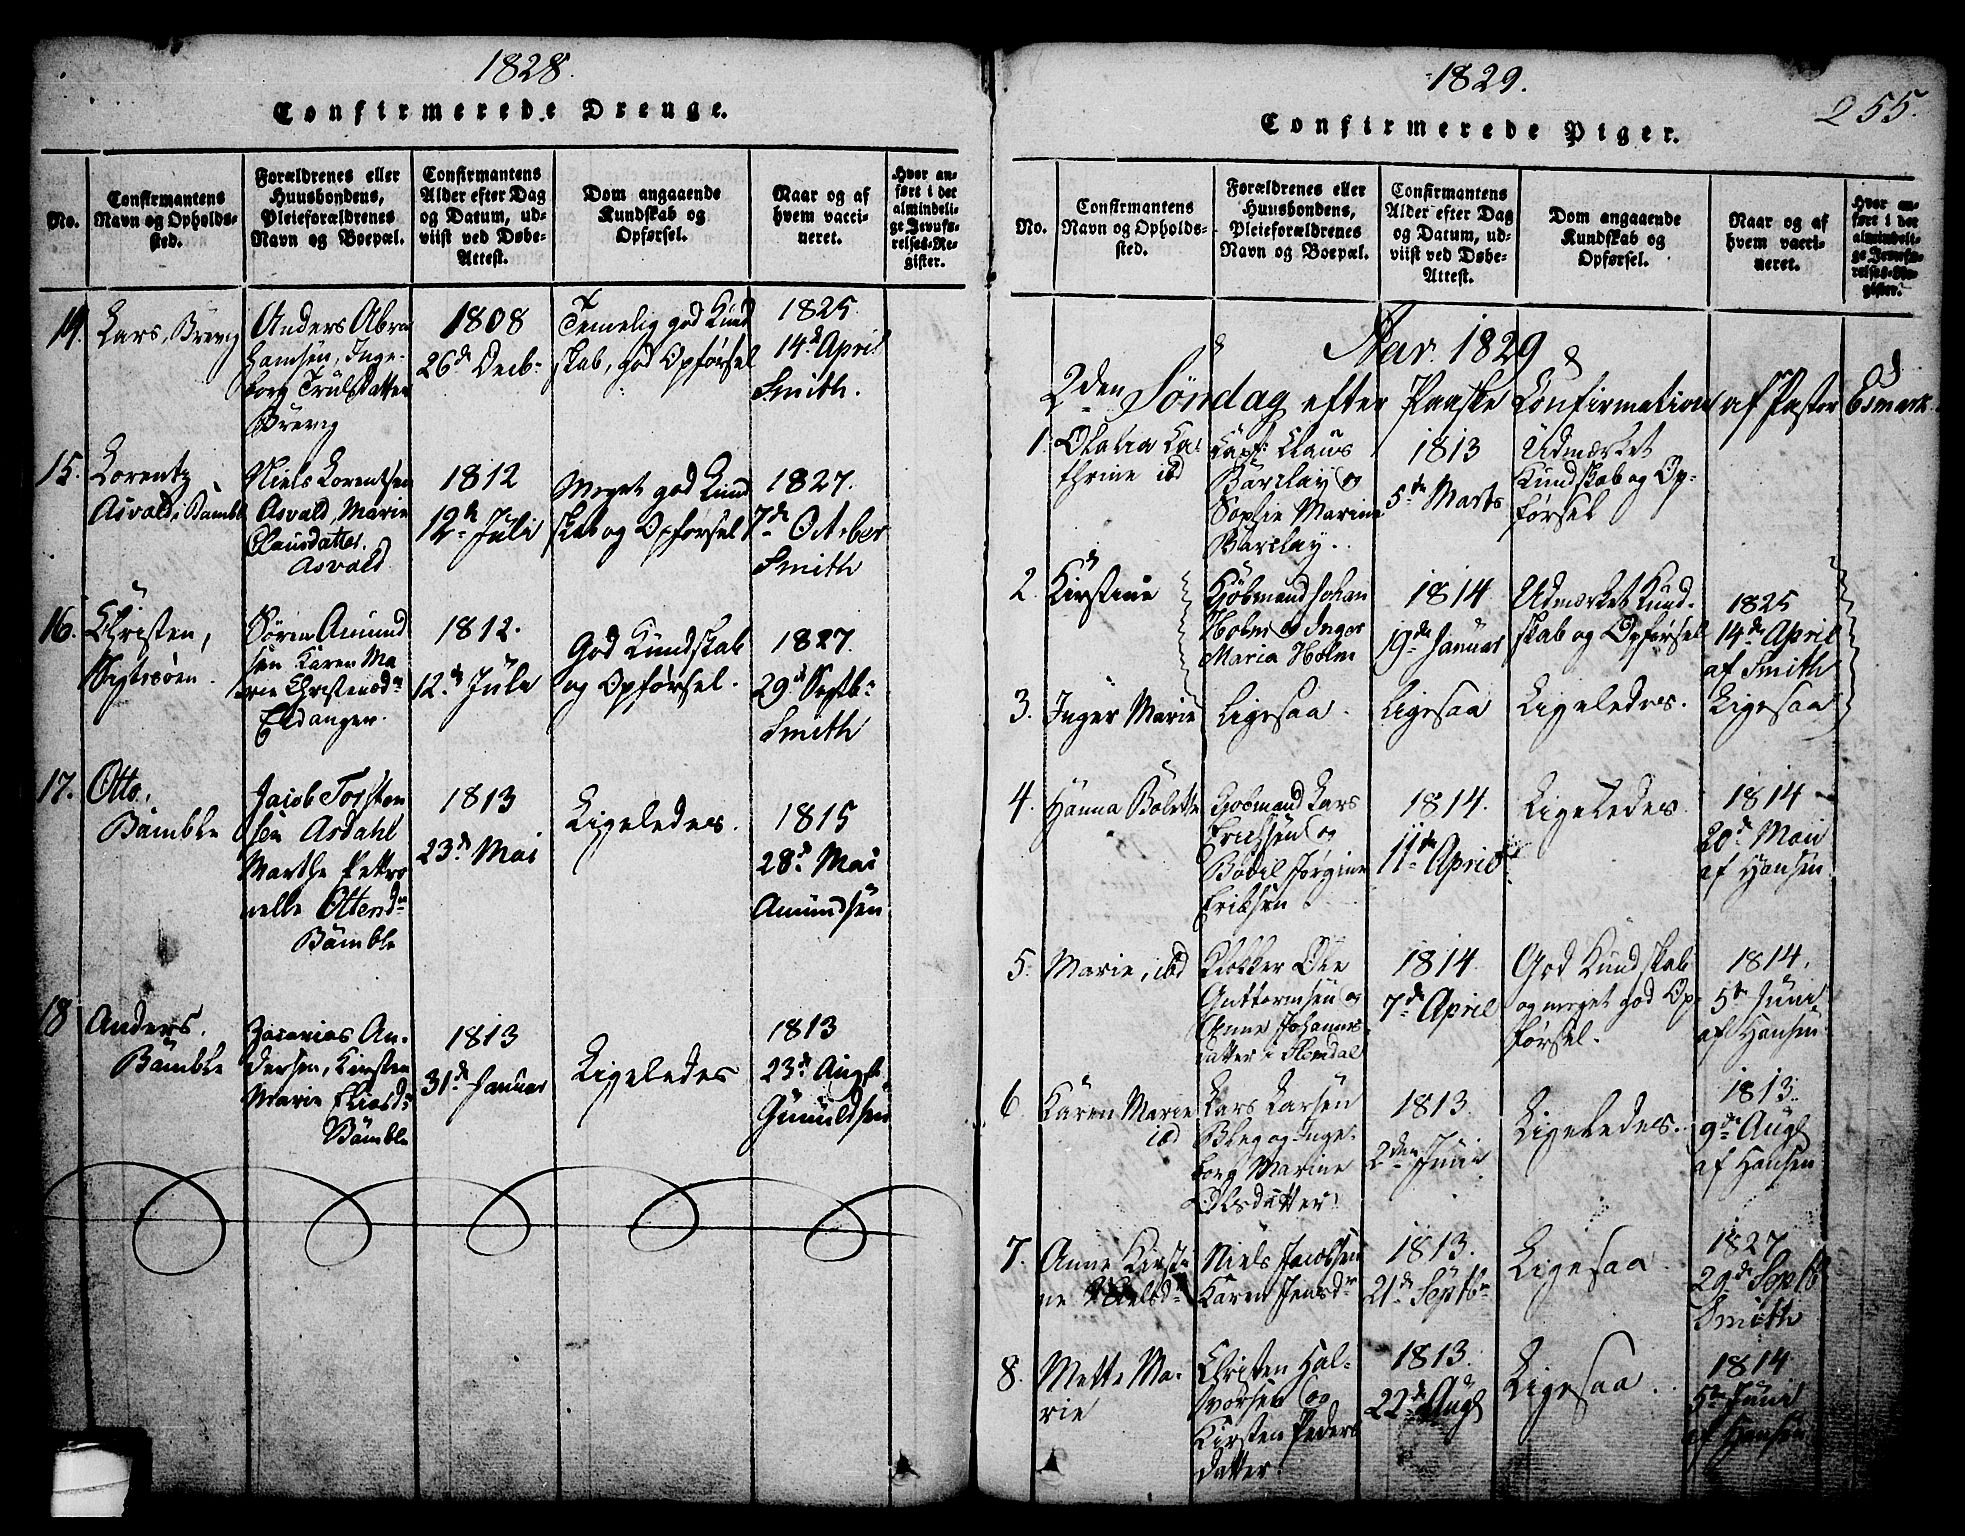 1828.
Confirmerede Drenge.
No.
Confirmantens
Navn og Opholds-
sted.
Forældrenes eller
Huusbondens,
Pleieforældrenes
Navn og Boepæl.
Confirmantens
Alder efter Dag
og Datum, ud-
viist ved Døbe-
Attest.
Dom angaaende
Kundskab og
Opførsel.
Naar og af
hvem vacci-
neret.
Hvor an-
ført i det
almindeli-
ge Jevnfø-
relses-Re-
gister.
14. Lars, Brevig
Anders Abra
hamsen, Inge-
borg Trulsdatter
Brevig
1808
26de Decb.
Temelig god Kund
skab, god Opførsel
1825.
14de April
Smith.
15. Lorentz
Asvald, Bamble
Niels Lorentsen
Asvald, Marie
Clausdatter
Asvald
1812
12te Juli
Meget god Kund
skab og Opførsel
1827.
7de October
Smith
16. Christen,
Søren Amund
sen Karen Ma
rie Christensdr
Eidanger.
1812.
12te Juli
God Kundskab
og Opførsel.
1827.
29de Septbr
Smith
17. Otto,
Bamble
Jacob Torsten
sen Asdahl
Marthe Petro
nelle Ottensdr
Bamble
1813
23de Mai
Ligeledes.
1815
28de Mai
Amundsen
18 Anders.
Bamble
Zacarias An-
dersen, Kirsten
Marie Eliasdr
Bamble
1813
31de Januar
Ligeledes
1813
23de Augst.
Gunuldsen
1829.
255.
Confirmerede Piger.
No.
Confirmantens
Navn og Opholds-
sted.
Forældrenes eller
Huusbondens,
Pleieforældrenes
Navn og Boepæl.
Confirmantens
Alder efter Dag
og Datum, ud-
viist ved Døbe-
Attest.
Dom angaaende
Kundskab og
Opførsel.
Naar og af
hvem vacci-
neret.
Hvor an-
ført i det
almindeli-
ge Jevnfø-
relses-Re-
gister.
Aar. 1829
2den Søndag efter Paaske Confirmation af Pastor Esmark.
1. Olalia Ca-
thrine ibd
Capt: Claus
Barclay og
Sophie Marine
Barclay.
1813
5te Marts
Udmærket
Kundskab og Op-
førsel
2. Kirstine
Kjøbmand Johan
Holm og Inger
Maria Holm
1814
19de Januar
Udmærket Kund-
skab og Opførsel
1825
14de April
af Smith
3. Inger Marie
Ligesaa.
Ligesaa
Ligeledes.
Ligesaa
4. Hanna Bolette
Kjøbmand Lars
Erichsen og
Bodil Jørgine
Eriksen
1814.
11te April
Ligeledes.
1814
20de Mai
af Hansen
5. Marie, ibd
Klokker Ole
Guttormsen og
Anne Johannes
datter i Slemdal
1814
7de April
God Kundskab
og meget god Op-
førsel.
1814.
5te Juni
af Hansen
6. Karen Marie
ibd
Lars Larsen
Bleg og Inge-
borg Marine
Olsdatter.
1813
2den Juni
Ligeledes.
1813.
9de Augs
af Hansen
7. Anne Kirsti
ne Nielsdr
Niels Jacobsen
Karen Jensdr
1813.
21de Septbr
Ligesaa.
1827
29de Septb
Smith
8. Mette Ma-
rie
Christen Hal-
vorsen og
Kirsten Peders
datter.
1813.
22de Augs
Ligesaa.
1814
5te Juni
af Hansen